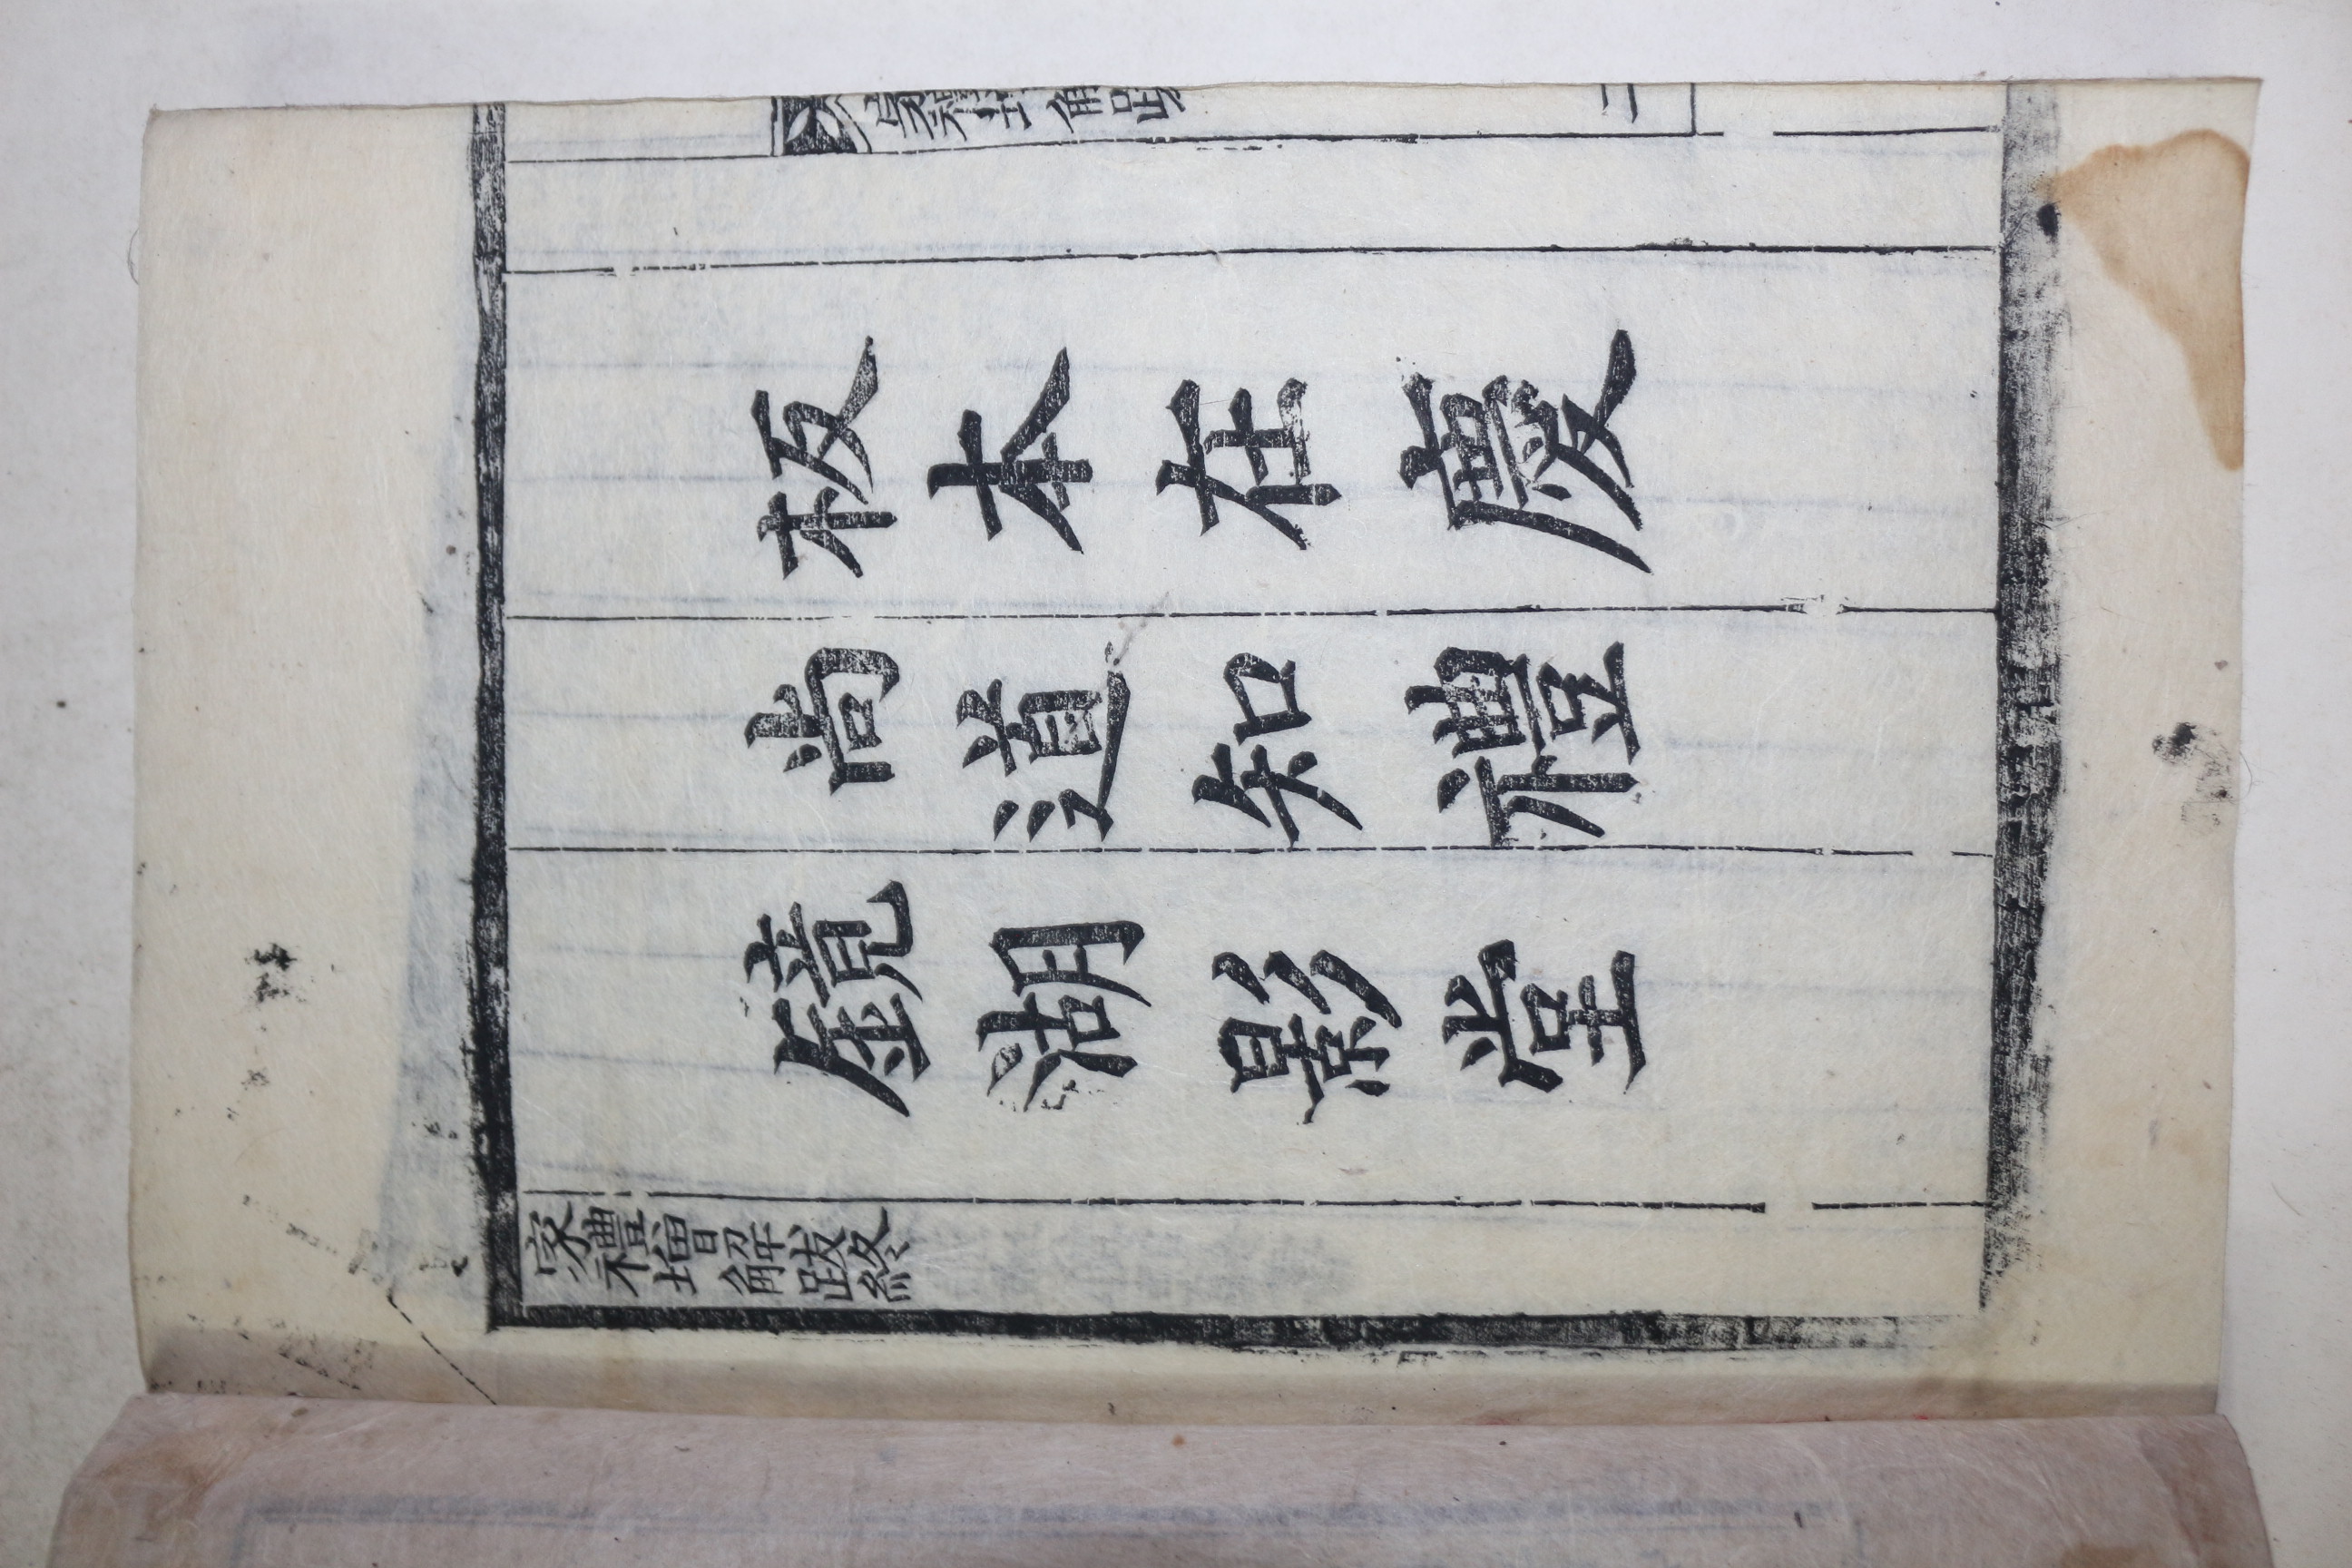 家禮增解跋 二
板本在慶
尚道知禮
鏡湖影堂
家禮增解跋終